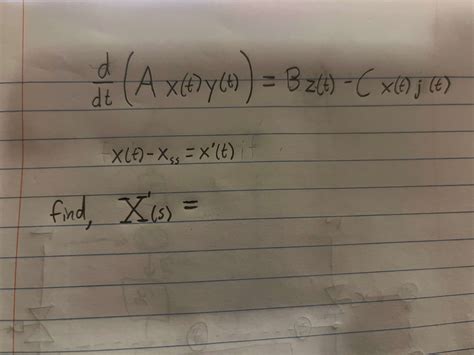 d/dt (A x(t) y(t)) = B z(t) - C x(t) j(t)
x(t) - x_ss = x'(t)
find, X'(s) =